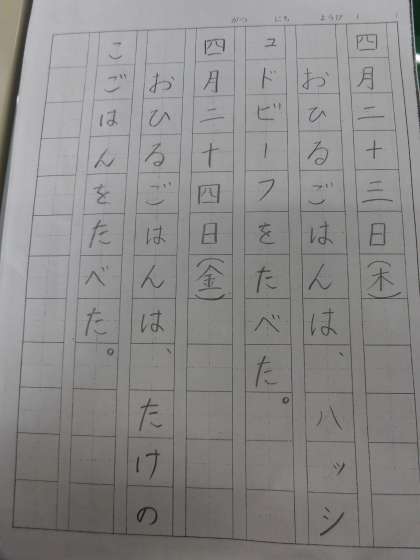 がつ にち ようび
四月二十三日(木)
おひるごはんは、ハッシ
ュドビーフをたべた。
四月二十四日(金)
おひるごはんは、たけの
こごはんをたべた。